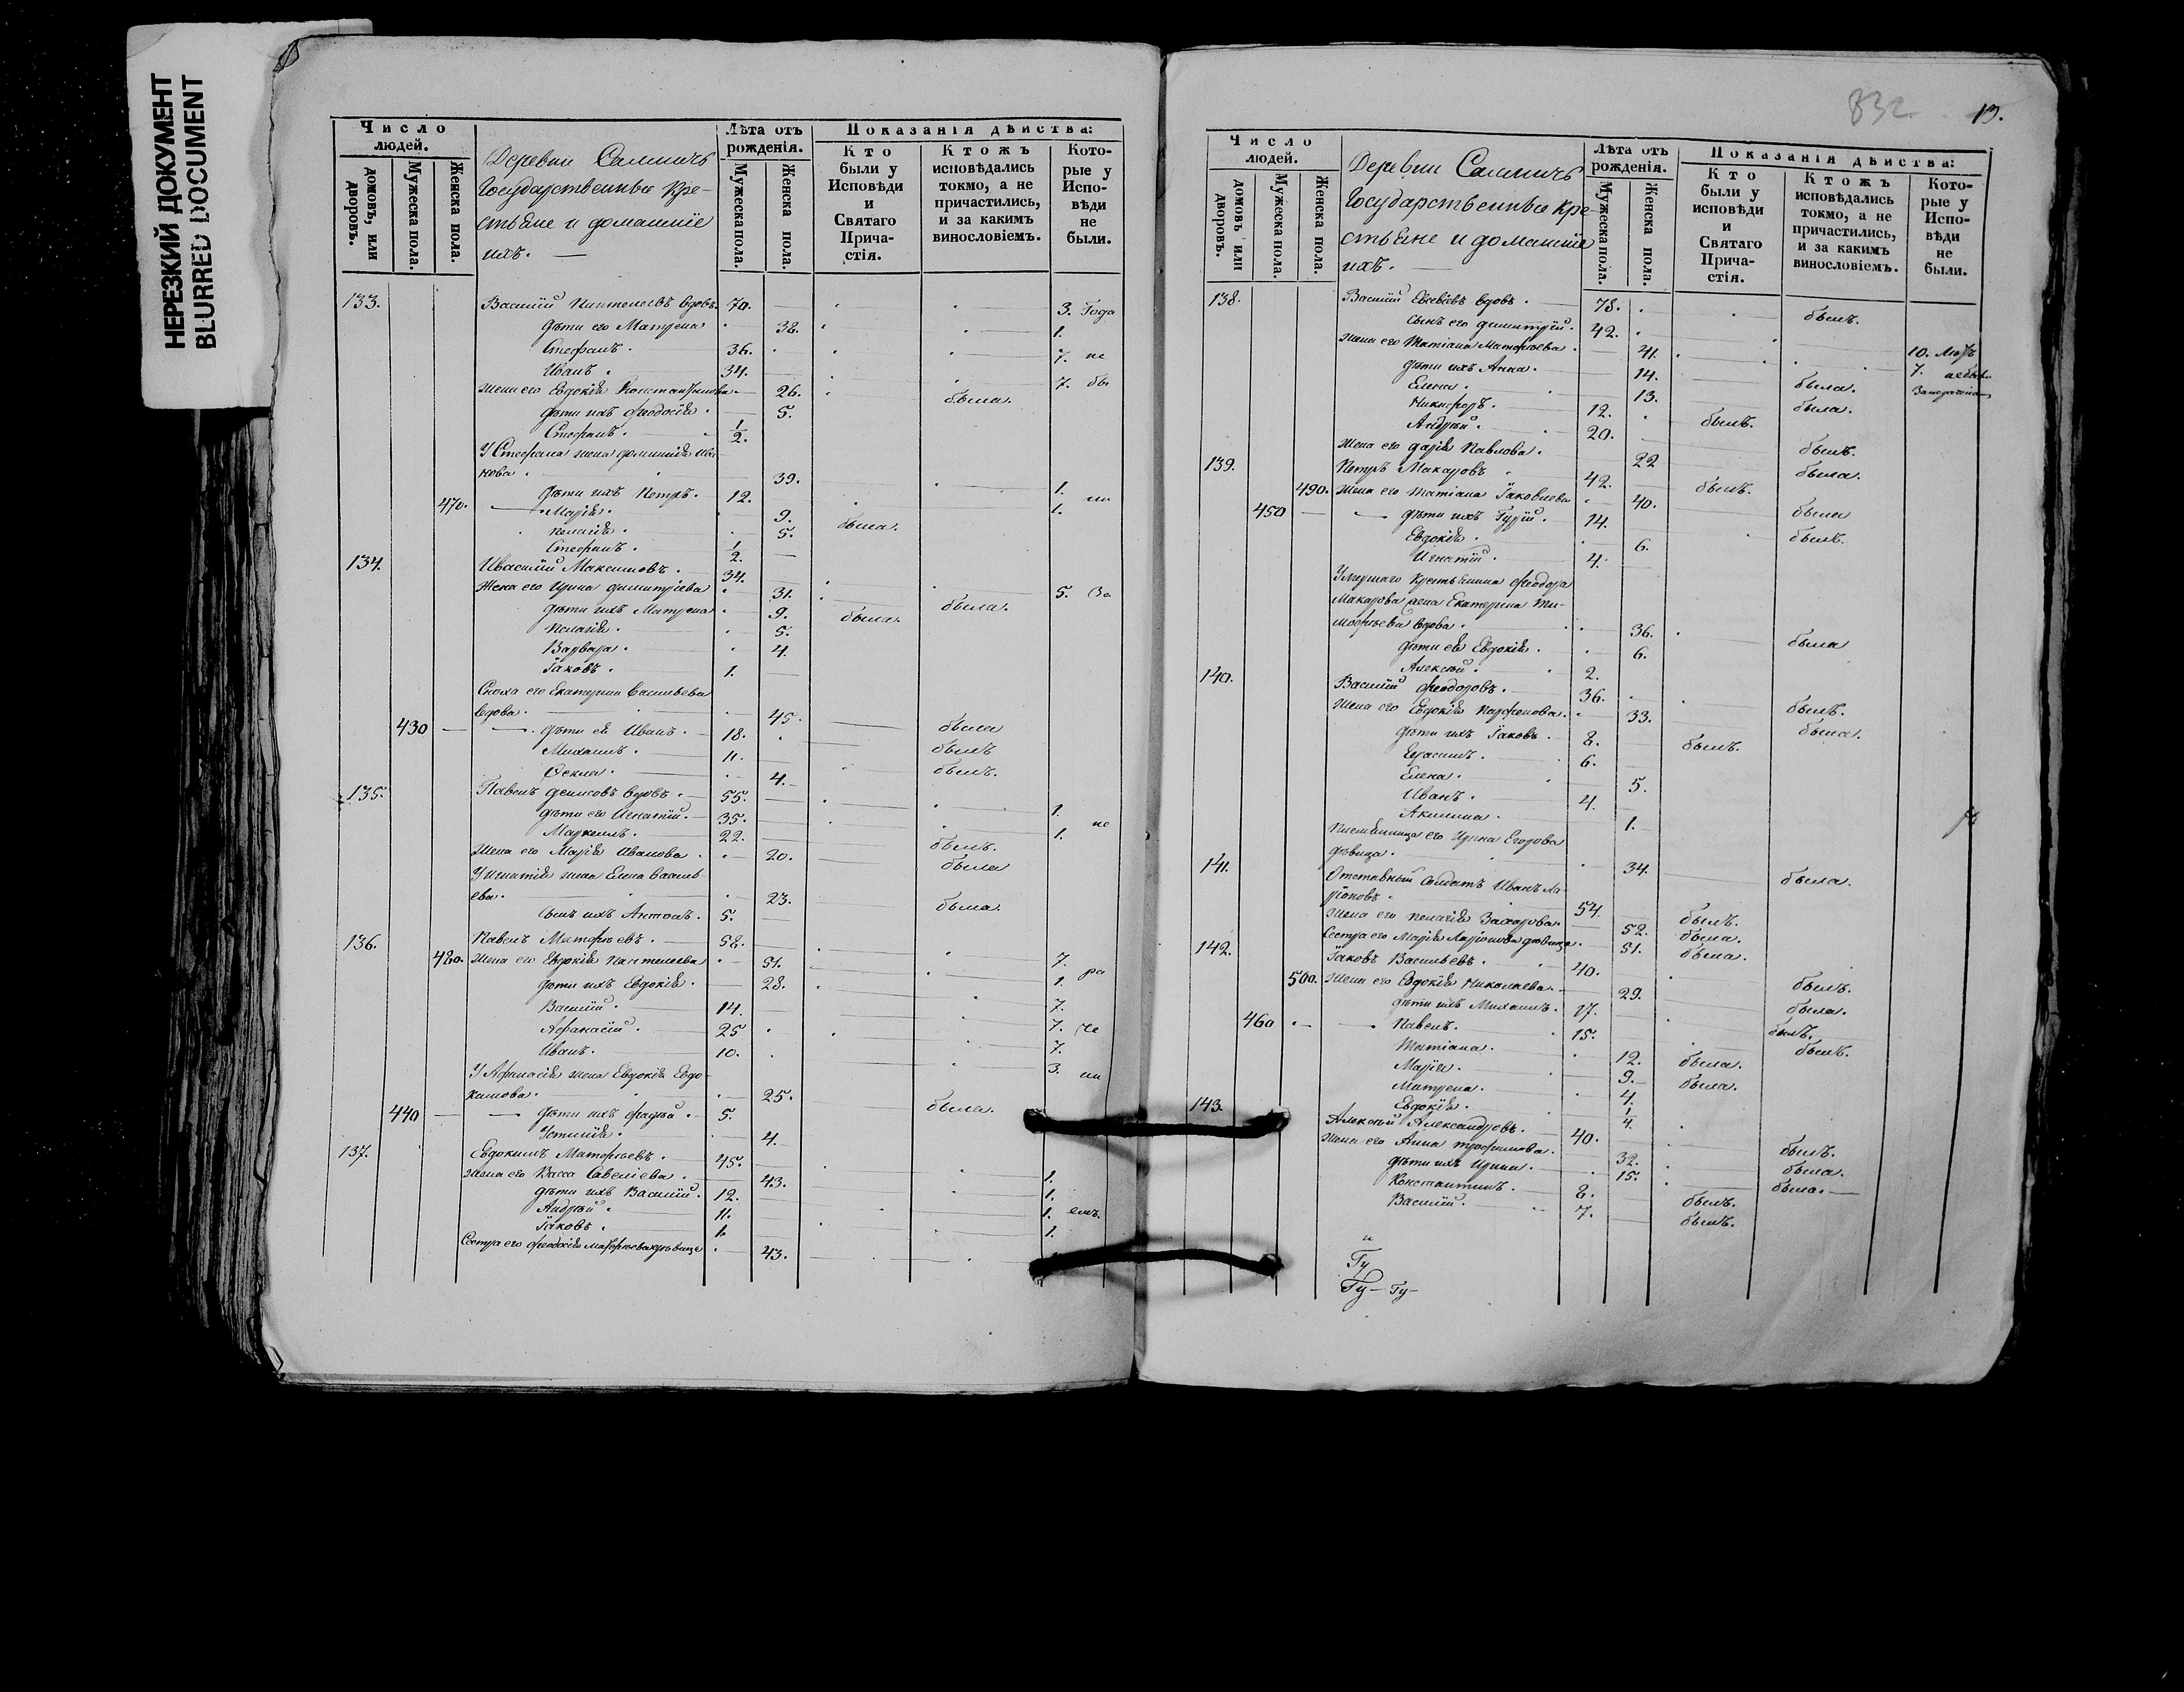 НЕРЕЗКИЙ ДОКУМЕНТ
BLURRED DOCUMENT
Число людей.
домовъ, или дворовъ.
Мужеска пола.
Женска пола.
Деревни
Государственные Кре-
стьяне и домашніе
ихъ.
Лѣта отъ рожденія.
Мужеска пола.
Женска пола.
Показанія дѣйства:
Кто были у Исповѣди и Святаго Прича-стія.
Ктожъ исповѣдались токмо, а не причастились, и за какимъ винословіемъ.
Кото-рые у Испо-вѣди не были.
133. Василій Пантелеевъ вдовъ. 70. 3. Года
дѣти его Матрена 38. 1.
Стефанъ. 36. 7. не
Иванъ. 34. 7. бы
Жена его Евдокія Константинова 26. была.
дѣти ихъ Феодосія 5.
Стефанъ. 1/2.
У Стефана жена Домникія Ива
нова. 39. 1.
дѣти ихъ Петръ. 12. 1.
470. Марія. 9. была.
Пелагія. 5.
Стефанъ. 1/2.
134. Максимовъ. 34.
Жена его Ирина Димитріева 31. 5. За
дѣти ихъ Матрена 9. была. была.
Пелагія. 5.
Варвара. 4.
Іаковъ. 1.
Сноха его Екатерина Васильева
вдова. 45. была
430 дѣти ея Иванъ. 18. былъ
Михаилъ. 11. былъ.
Фекла. 4.
135. Павелъ Денисовъ вдовъ. 55. 1.
дѣти его Игнатій. 35. не
Маркелъ. 22. былъ. 1.
Жена его Марія Иванова 20. была
У Игнатія жена Елена Василь-
ева. 23. была.
сынъ ихъ Антонъ. 5.
136. Павелъ Матфеевъ. 58.
480. Жена его Евдокія Пантелеева 51. 7.
дѣти ихъ Евдокія. 28. 1. ра
Василій. 14. 7.
Афанасій. 25 7. че
Иванъ. 10. 7.
У Афанасія жена Евдокія Евдо- 3.
кимова. 25. была.
440 дѣти ихъ Фадѣй 5.
Устинія. 4.
137. Евдокимъ Матфеевъ. 45.
Жена его Васса Савеліева. 43. 1.
дѣти ихъ Василій. 12. 1.
Андрей 11. 1. емъ.
Іаковъ. 1. 1.
Сестра его Феодосія Матфеева дѣвица 43.
832.
13.
Число людей.
домовъ или дворовъ.
Мужеска пола.
Женска пола.
Деревни
Государственные Кре-
стьяне и домашніе
ихъ.
Лѣта отъ рожденія.
Мужеска пола.
Женска пола.
Показанія дѣйства:
Кто были у исповѣди и Святаго Прича-стія.
Ктожъ исповѣдались токмо, а не причастились, и за какимъ винословіемъ.
Кото-рые у Испо-вѣди не были.
138. Василій вдовъ. 78. былъ.
сынъ его Димитрій. 42.
Жена его Татіана Матфеева 41. 10.
дѣти ихъ Анна. 14. 7.
Елена. 13. была.
Никифоръ. 12. была.
Андрей. 20. былъ.
Жена его Дарія Павлова. 22 былъ.
139. Петръ Макаровъ 42. была.
490. Жена его Татіана Іаковлева 40. былъ.
450 дѣти ихъ Гурій. 14. была
Евдокія. 6. былъ.
Игнатій. 4.
Умершаго крестьянина Феодора
Макарова жена Екатерина Ти-
мофеева вдова. 36. была
дѣти ея Евдокія. 6.
Алексѣй. 2.
140. Василій Феодоровъ. 36. былъ.
Жена его Евдокія Парфенова. 33. была.
дѣти ихъ Іаковъ 8. былъ.
Герасимъ. 6.
Елена. 5.
Иванъ. 4.
Акилина. 1.
Племянница его Ирина Егорова
дѣвица. 34. была.
141. Отставный солдатъ Иванъ Ла-
ріоновъ. 54. былъ.
Жена его Пелагія Захарова. 52. была.
Сестра его Марія Ларіонова дѣвица. 51. была.
142. Іаковъ Васильевъ. 40. былъ.
500. Жена его Евдокія Николаева. 29. была.
дѣти ихъ Михаилъ. 17. былъ.
460 Павелъ. 15. былъ.
Татіана. 12. была.
Марія. 9. была.
Матрена. 4.
Евдокія. 1/4.
143. Алексѣй Александровъ. 40. былъ.
Жена его Анна Трофимова. 32. была.
дѣти ихъ Ирина. 15. была.
Константинъ. 8. былъ.
Василій. 7. былъ.
и
Гу
Гу- Гу-